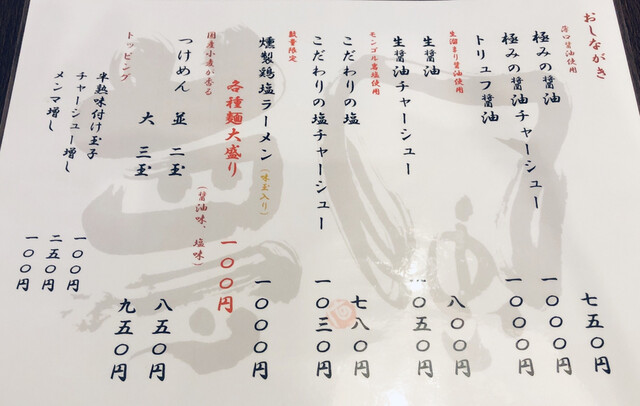 おしながき
薄口醤油使用
極みの醤油 七五〇円
極みの醤油チャーシュー 一〇〇〇円
トリュフ醤油 一〇〇〇円
生溜まり醤油使用
生醤油 八〇〇円
生醤油チャーシュー 一〇五〇円
モンゴル岩塩使用
こだわりの塩 七八〇円
こだわりの塩チャーシュー 一〇三〇円
数量限定
燻製鶏塩ラーメン(味玉入り) 一〇〇〇円
各種麺大盛り 一〇〇円
国産小麦が香る
つけめん (醤油味、塩味)
並 二玉 八五〇円
大 三玉 九五〇円
トッピング
半熟味付け玉子 一〇〇円
チャーシュー増し 二五〇円
メンマ増し 一〇〇円